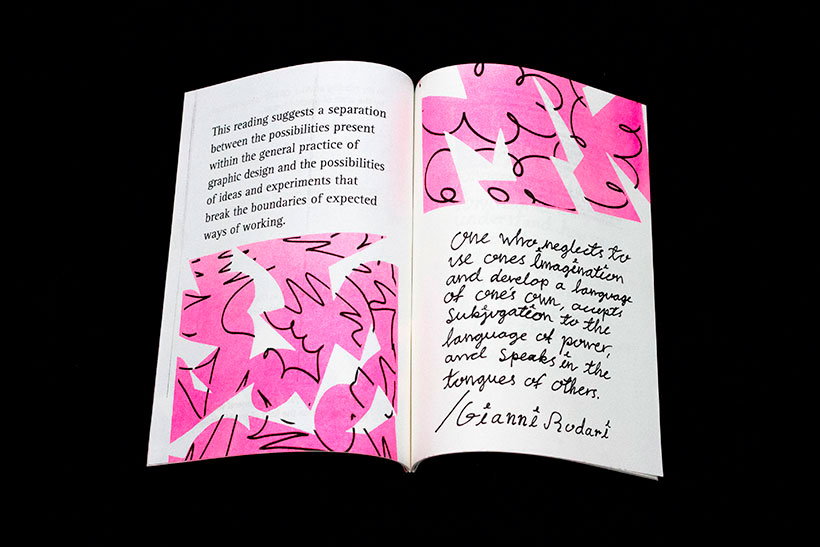 This reading suggests a separation
between the possibilities present
within the general practice of
graphic design and the possibilities
of ideas and experiments that
break the boundaries of expected
ways of working.
One who neglects to
use ones imagination
and develop a language
of one's own, accepts
subjugation to the
language of power,
and speaks in the
tongues of others.
/Gianni Rodari